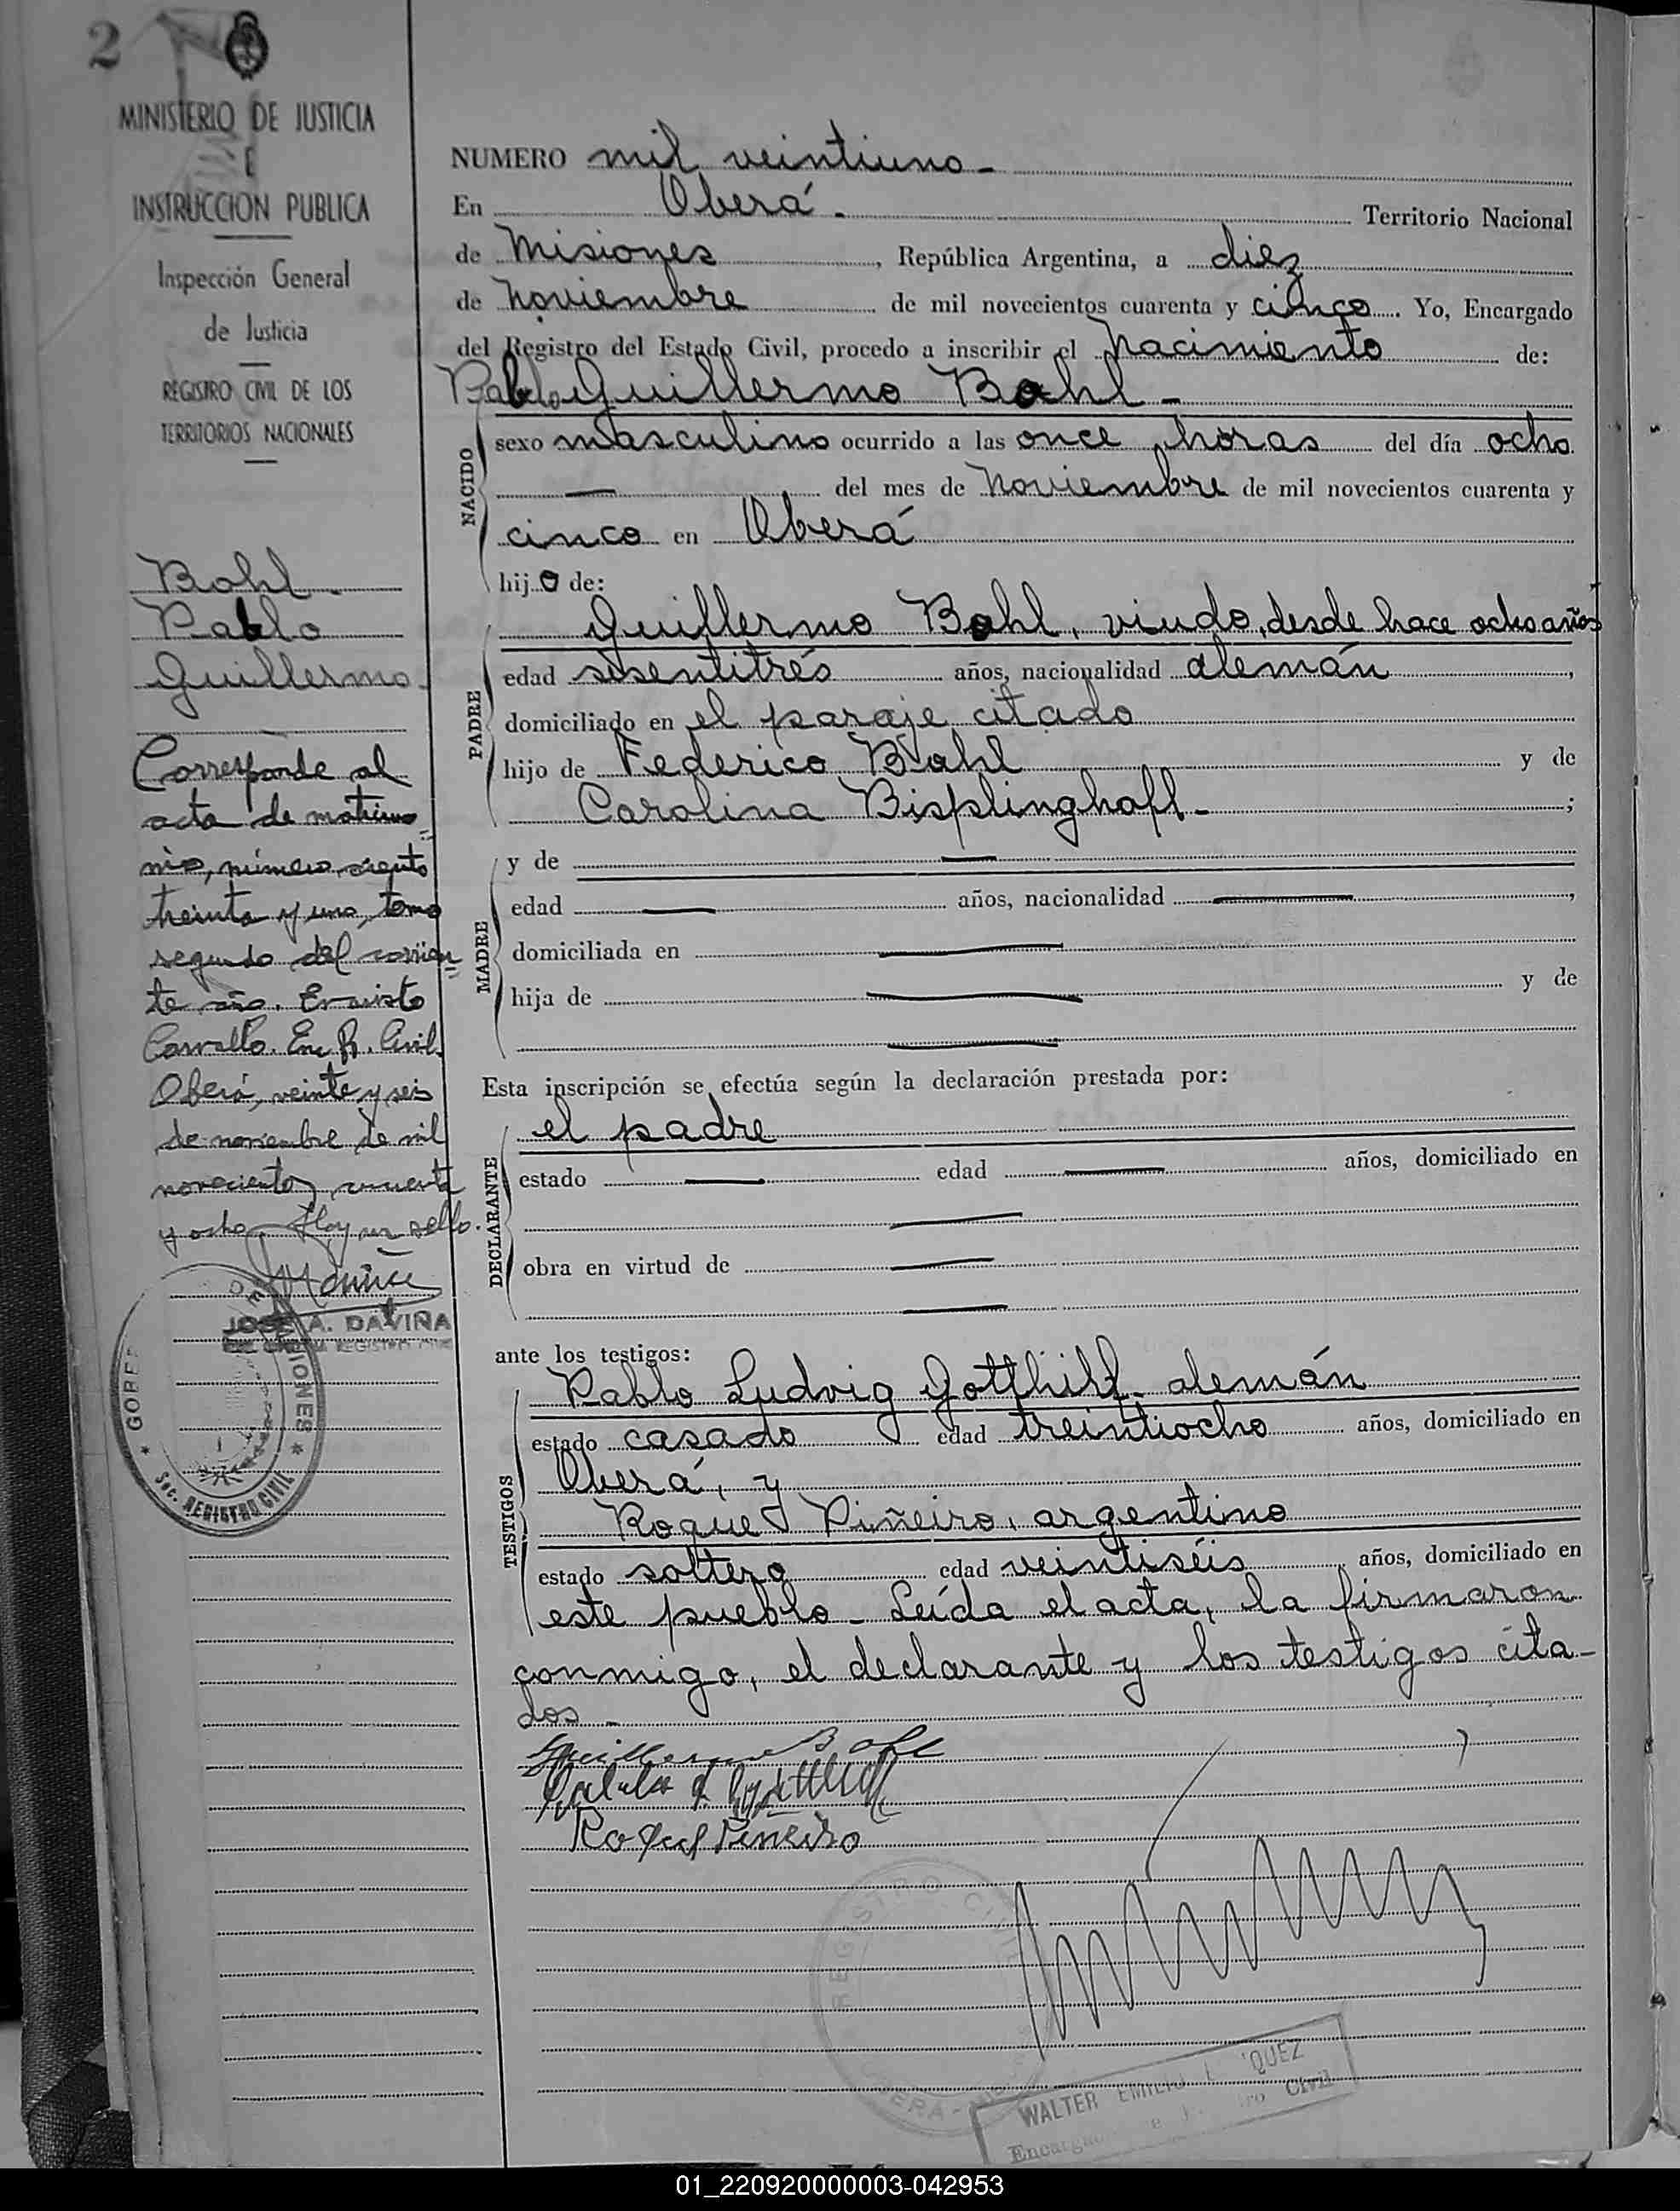 2
MINISTERIO DE JUSTICIA
E
INSTRUCCION PUBLICA
Inspección General
de Justicia
REGISTRO CIVIL DE LOS
TERRITORIOS NACIONALES
Bohl
Pablo
Guillermo
Corresponde al
acta de matrimo=
nio, número ciento
treinta y uno, tomo
segundo del corrien=
te año. Evaristo
Carvallo. Enc. R. Civil.
Oberá, veinte y seis
de noviembre de mil
novecientos cuarenta
y ocho. Hay un sello.
JOSE A. DAVIÑA
GOBER
DE
IONES
Sec. REGISTRO CIVIL
NUMERO mil veintiuno -
En Oberá - Territorio Nacional
de Misiones, República Argentina, a diez
de noviembre de mil novecientos cuarenta y cinco. Yo, Encargado
del Registro del Estado Civil, procedo a inscribir el nacimiento de:
Pablo Guillermo Bohl -
NACIDO
sexo masculino ocurrido a las once horas del día ocho
— del mes de noviembre de mil novecientos cuarenta y
cinco en Oberá
hijo de:
PADRE
Guillermo Bohl, viudo, desde hace ocho años
edad sesentitrés años, nacionalidad alemán,
domiciliado en el paraje citado
hijo de Federico Bohl y de
Carolina Bisplinghoff - ;
MADRE
y de —
edad — años, nacionalidad —,
domiciliada en —
hija de — y de
—
Esta inscripción se efectúa según la declaración prestada por:
DECLARANTE
el padre
estado — edad — años, domiciliado en
—
obra en virtud de —
—
ante los testigos:
TESTIGOS
Pablo Ludvig Gotthilf - alemán
estado casado edad treintiocho años, domiciliado en
Oberá, y
Roque Piñeiro, argentino
estado soltero edad veintiséis años, domiciliado en
este pueblo - Leída el acta, la firmaron
conmigo, el declarante y los testigos cita-
dos -
Guillermo Bohl
Roque Piñeiro
REGISTRO CIVIL
WALTER EMILIO
Civil
01_220920000003-042953